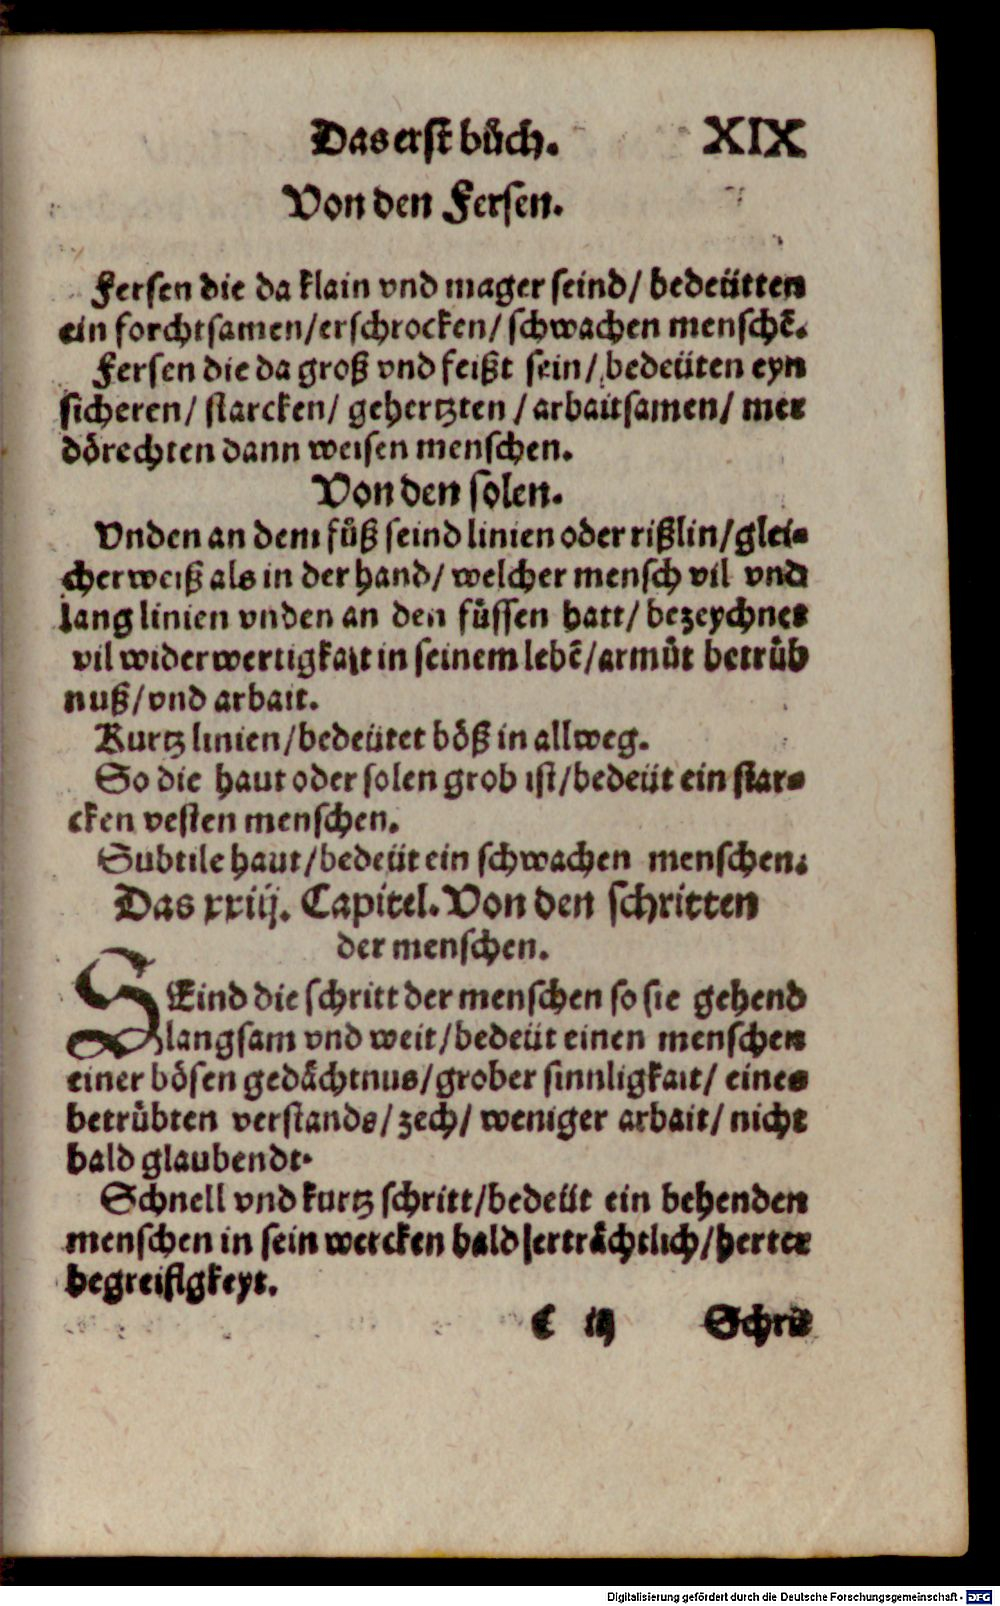 Das erst bůch. XIX
Von den Fersen.
Fersen die da klain vnd mager seind/ bedeütten
ein forchtsamen/erschrocken/ schwachen menschē.
Fersen die da groß vnd feißt sein/ bedeüten eyn
sicheren/ starcken/ gehertzten / arbaitsamen/ mer
dörechten dann weisen menschen.
Von den solen.
Vnden an dem fůß seind linien oder rißlin/glei-
cher weiß als in der hand/ welcher mensch vil vnd
lang linien vnden an den füssen hatt/ bezeychnet
vil widerwertigkait in seinem lebē/armůt betrüb
nuß/vnd arbait.
Kurtz linien/bedeütet böß in allweg.
So die haut oder solen grob ist/bedeüt ein star-
cken vesten menschen.
Subtile haut/bedeüt ein schwachen menschen.
Das xxiij. Capitel. Von den schritten
der menschen.
SEind die schritt der menschen so sie gehend
langsam vnd weit/bedeüt einen menschen
einer bösen gedächtnus/grober sinnligkait/ eines
betrübten verstands/zech/ weniger arbait/ nicht
bald glaubendt.
Schnell vnd kurtz schritt/bedeüt ein behenden
menschen in sein wercken bald erträchtlich/herter
begreiflgkeyt.
C iij Schrit
Digitalisierung gefördert durch die Deutsche Forschungsgemeinschaft - DFG